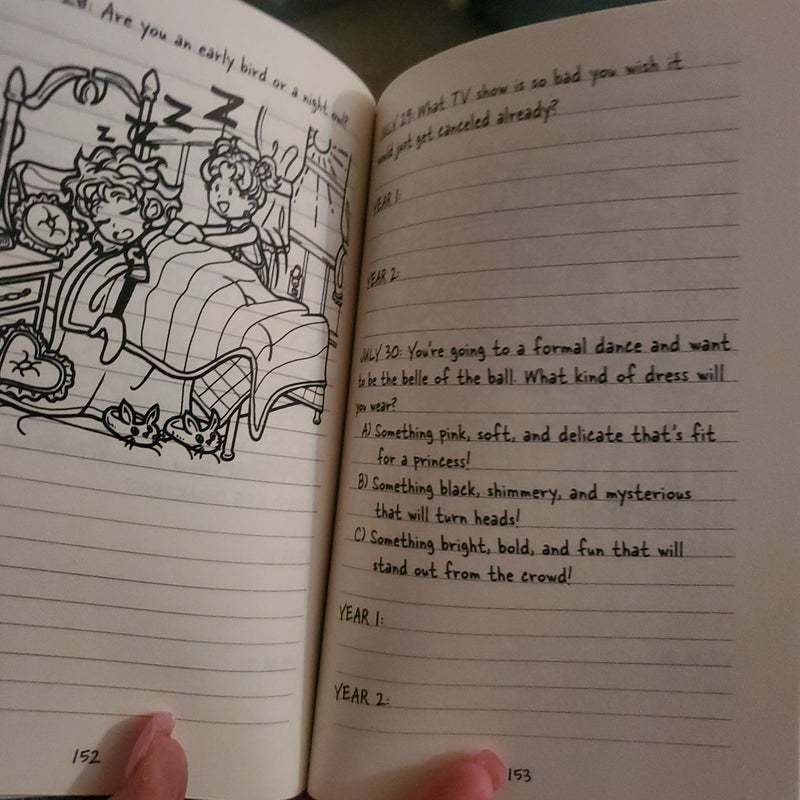 28: Are you an early bird or a night owl?
z z Z Z
152
JULY 29: What TV show is so bad you wish it
would just get canceled already?
YEAR 1:
YEAR 2:
JULY 30: You're going to a formal dance and want
to be the belle of the ball. What kind of dress will
you wear?
A) Something pink, soft, and delicate that's fit
for a princess!
B) Something black, shimmery, and mysterious
that will turn heads!
C) Something bright, bold, and fun that will
stand out from the crowd!
YEAR 1:
YEAR 2:
153